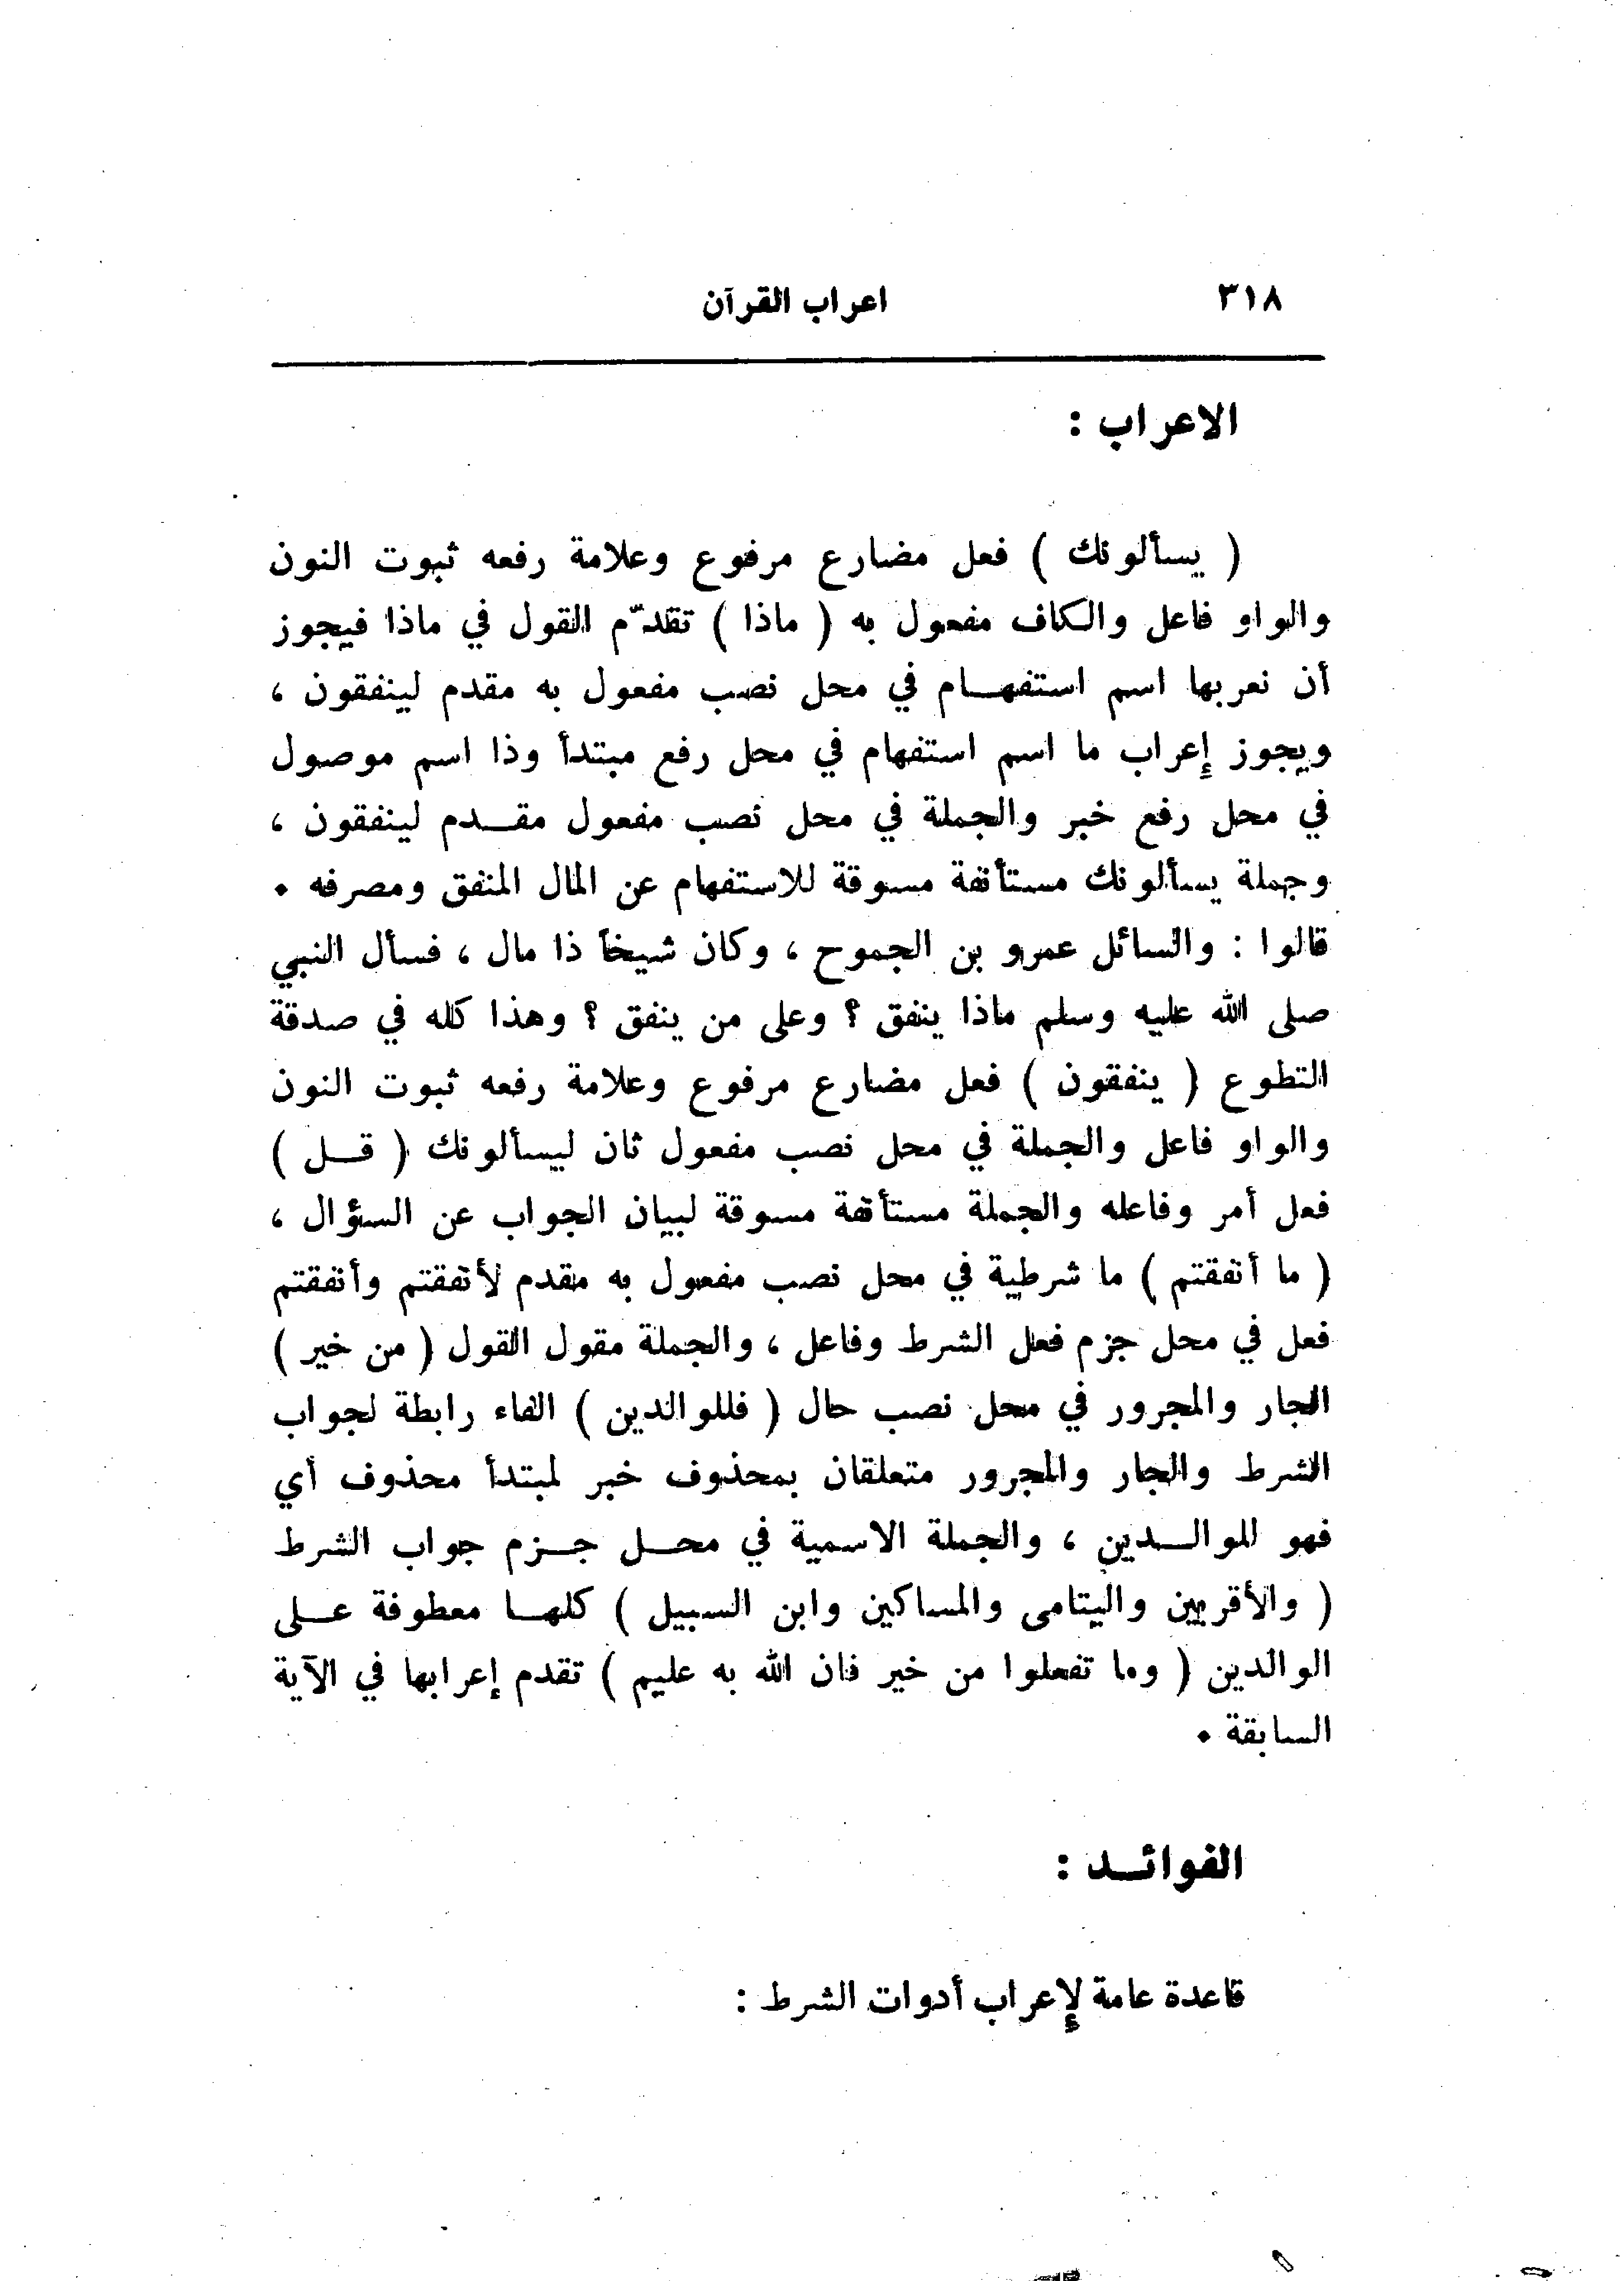 ٣١٨ اعراب القرآن
الاعراب :
( يسألونك ) فعل مضارع مرفوع وعلامة رفعه ثبوت النون
والواو فاعل والكاف مفعول به ( ماذا ) تقدّم القول في ماذا فيجوز
أن نعربها اسم استفهام في محل نصب مفعول به مقدم لينفقون ،
ويجوز إعراب ما اسم استفهام في محل رفع مبتدأ وذا اسم موصول
في محل رفع خبر والجملة في محل نصب مفعول مقدم لينفقون ،
وجملة يسألونك مستأنفة مسوقة للاستفهام عن المال المنفق ومصرفه .
قالوا : والسائل عمرو بن الجموح ، وكان شيخاً ذا مال ، فسأل النبي
صلى الله عليه وسلم ماذا ينفق ؟ وعلى من ينفق ؟ وهذا كله في صدقة
التطوع ( ينفقون ) فعل مضارع مرفوع وعلامة رفعه ثبوت النون
والواو فاعل والجملة في محل نصب مفعول ثان ليسألونك ( قل )
فعل أمر وفاعله والجملة مستأنفة مسوقة لبيان الجواب عن السؤال ،
( ما أنفقتم ) ما شرطية في محل نصب مفعول به مقدم لأنفقتم وأنفقتم
فعل في محل جزم فعل الشرط وفاعل ، والجملة مقول القول ( من خير )
الجار والمجرور في محل نصب حال ( فللوالدين ) الفاء رابطة لجواب
الشرط والجار والمجرور متعلقان بمحذوف خبر لمبتدأ محذوف أي
فهو للوالدين ، والجملة الاسمية في محل جزم جواب الشرط
( والأقربين واليتامى والمساكين وابن السبيل ) كلها معطوفة على
الوالدين ( وما تفعلوا من خير فان الله به عليم ) تقدم إعرابها في الآية
السابقة .
الفوائد :
قاعدة عامة لإعراب أدوات الشرط :